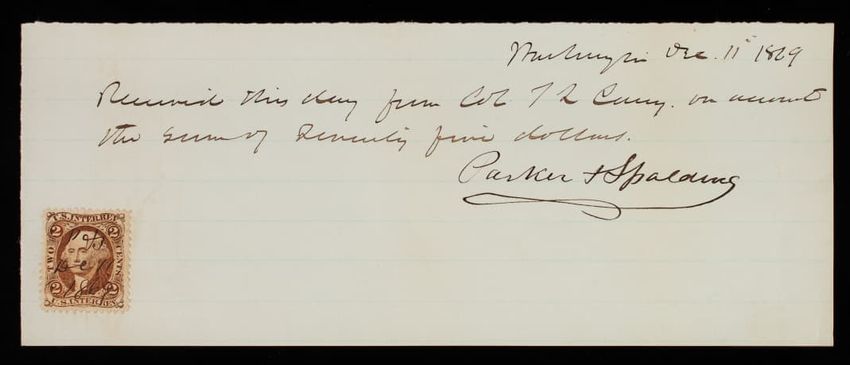 Washington Dec. 11 1869
Received this day from Col T L Casey. on account
the sum of Seventy five dollars.
Parker & Spalding
U.S. INTER. REV.
2 2
TWO CENTS
P & S
Dec 11
1869
2 2
U.S. INTER. REV.